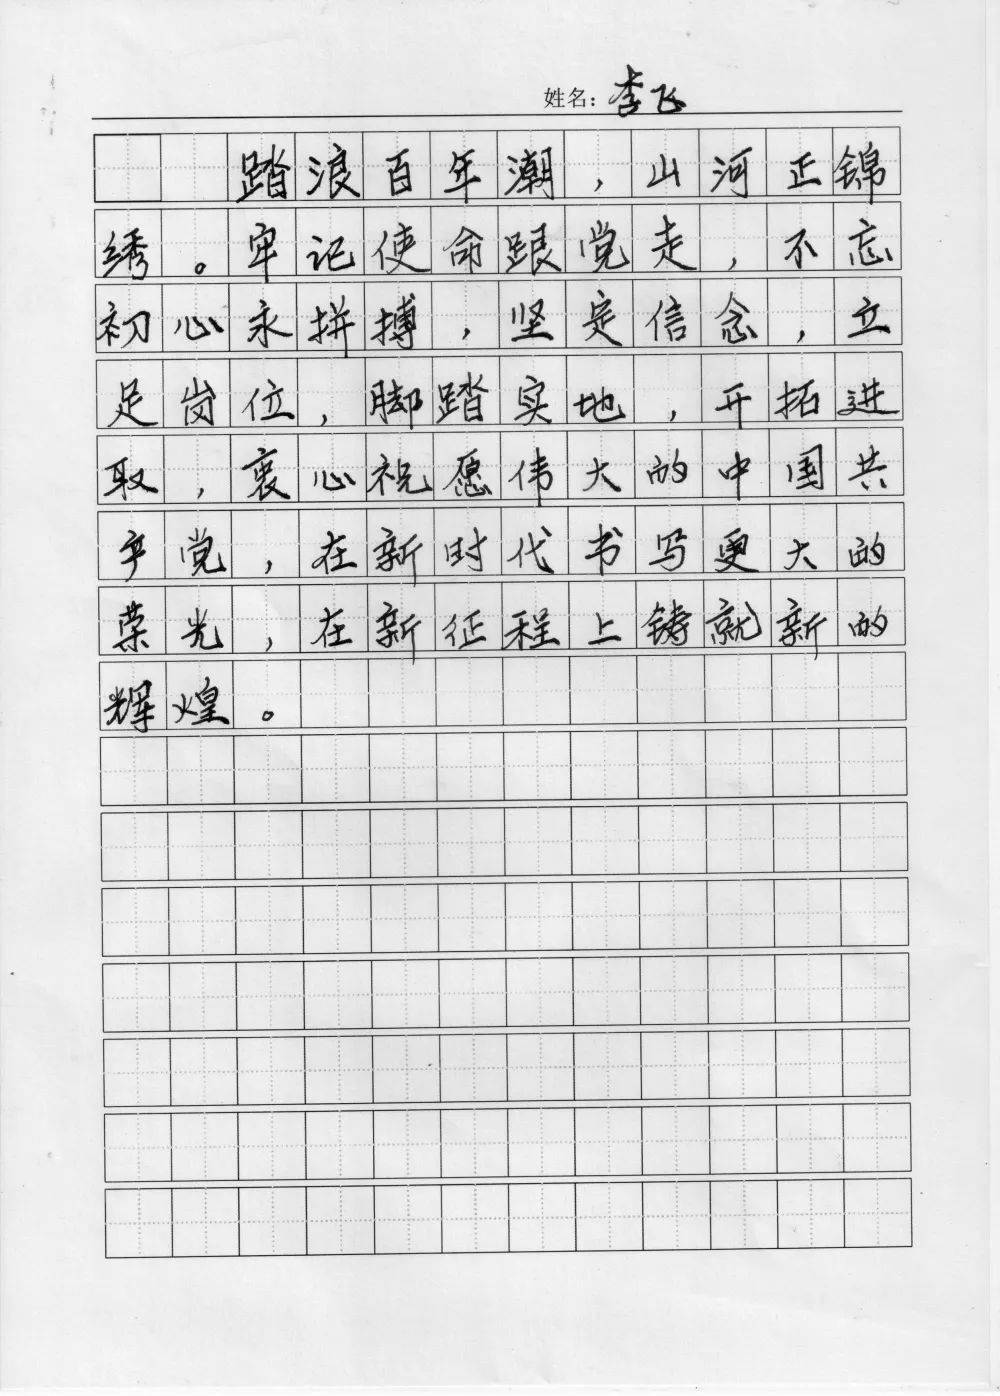 姓名：李飞
踏浪百年潮，山河正锦
绣。牢记使命跟党走，不忘
初心永拼搏，坚定信念，立
足岗位，脚踏实地，开拓进
取，衷心祝愿伟大的中国共
产党，在新时代书写更大的
荣光，在新征程上铸就新的
辉煌。